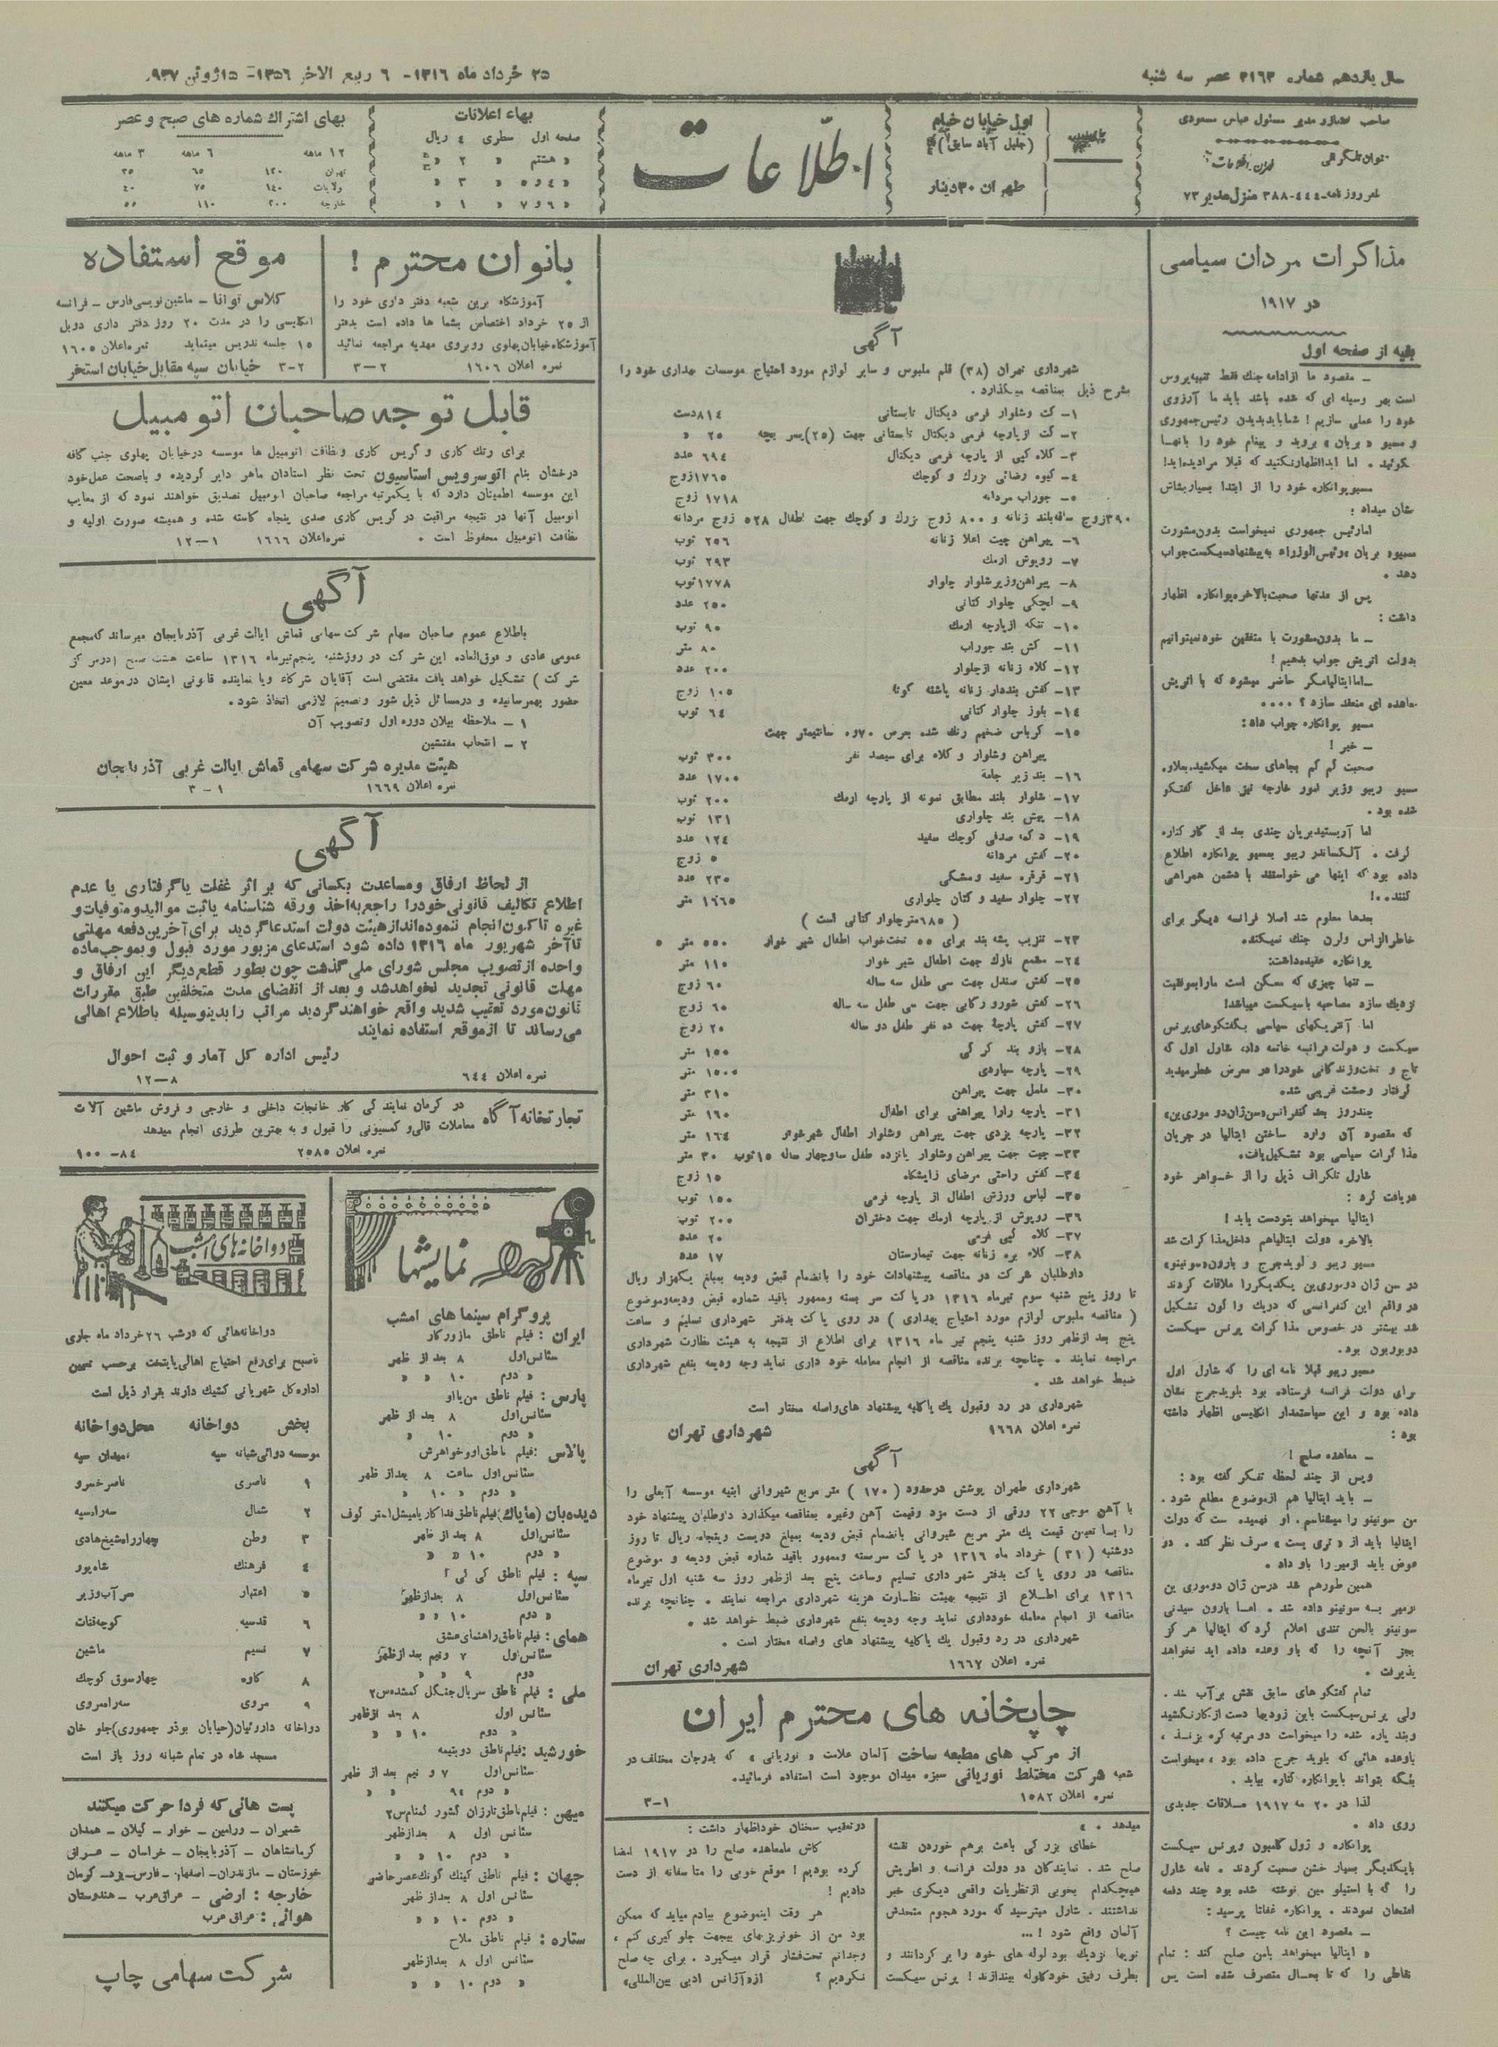 سال یازدهم شماره ۳۱۶۳ عصر سه شنبه
۲۵ خرداد ماه ۱۳۱۶ - ۶ ربیع الاخر ۱۳۵۶ - ۱۵ ژوئن ۹۳۷
صاحب امتیاز و مدیر مسئول عباس مسعودی
عنوان تلگرافی
نمر روزنامه ۴۴۴-۳۸۸ منزل مدیر ۷۳
اول خیابان خیام
(جلیل آباد سابق)
طهران ۳۰ دینار
اطلاعات
بهاء اعلانات
صفحه اول سطری ۴ ریال
« هشتم « ۲ «
« ۴ و ۵ « ۳ «
« ۶ و ۷ « ۱ «
بهای اشتراك شماره های صبح و عصر
۱۲ ماهه ۶ ماهه ۳ ماهه
تهران ۱۲۰ ۶۵ ۳۵
ولایات ۱۴۰ ۷۵ ۴۰
خارجه ۲۰۰ ۱۱۰ ۵۵
مذاکرات مردان سیاسی
در ۱۹۱۷
بقیه از صفحه اول
ـ مقصود ما از ادامه جنك فقط تنبیه پروس
است بهر وسیله ای که شده باشد باید ما آرزوی
خود را عملی سازیم ! شما باید بدیدن رئیس جمهوری
و مسیو « بریان » بروید و پیغام خود را بآنها
بگوئید . اما ابدا اظهار نکنید که قبلا مرا دیده اید!
مسیو پوانکاره خود را از ابتدا بسیار بشاش
نشان میداد :
اما رئیس جمهوری نمیخواست بدون مشورت
مسیو« بریان »رئیس الوزراء به پیشنهاد سیکست جواب
دهد .
پس از مدتها صحبت بالاخره پوانکاره اظهار
داشت :
ـ ما بدون مشورت با متفقین خود نمیتوانیم
بدولت اتریش جواب بدهیم !
ـ اما ایتالیا مگر حاضر میشود که با اتریش
معاهده ای منعقد سازد ؟ ....
مسیو پوانکاره جواب داد :
ـ خیر !
صحبت کم کم بجاهای سخت میکشید. بعلاوه
مسیو ریبو وزیر امور خارجه نیز داخل گفتگو
شده بود .
اما آریستید بریان چندی بعد از کار کناره
گرفت . آلکساندر ریبو بمسیو پوانکاره اطلاع
داده بود که اینها می خواستند با دشمن همراهی
کنند..!
بعدها معلوم شد اصلا فرانسه دیگر برای
خاطر الزاس ولرن جنك نمیکند.
پوانکاره عقیده داشت:
ـ تنها چیزی که ممکن است ما را بموفقیت
نزدیك سازد مصاحبه با سیکست میباشد!
اما آنتریکهای سیاسی بگفتگوهای پرنس
سیکست و دولت فرانسه خاتمه داد، شارل اول که
تاج و تخت و زندگانی خود را در معرض خطر میدید
گرفتار وحشت غریبی شد.
چند روز بعد کنفرانس «سن ژان دو مورین»
که مقصود آن وارد ساختن ایتالیا در جریان
مذاکرات سیاسی بود تشکیل یافت.
شارل تلگراف ذیل را از خواهر خود
دریافت کرد :
ایتالیا میخواهد بتو دست یابد !
بالاخره دولت ایتالیا هم داخل مذاکرات شد
مسیو ریبو و لوید جرج و بارون «سونینو»
در سن ژان دو مورین یکدیگر را ملاقات کردند
در واقع این کنفرانسی که دریك واگون تشکیل
شد بیشتر در خصوص مذاکرات پرنس سیکست
دو بوربون بود.
مسیو ریبو قبلا نامه ای را که شارل اول
برای دولت فرانسه فرستاده بود بلوید جرج نشان
داده بود و این سیاستمدار انگلیسی اظهار داشته
بود :
ـ معاهده صلح !
و پس از چند لحظه تفکر گفته بود :
ـ باید ایتالیا هم از موضوع مطلع شود .
من سونینو را میشناسم . او فهمیده است که دولت
ایتالیا باید از « تری یست » صرف نظر کند . در
عوض باید ازمیر را باو داد .
همین طور هم شد در سن ژان دو موری ین
ازمیر به سونینو داده شد . اما بارون سیدنی
سونینو بالحن تندی اعلام کرد که ایتالیا هرگز
بجز آنچه را که باو وعده داده اید نخواهد
پذیرفت .
تمام گفتگو های سابق نقش بر آب شد .
ولی پرنس سیکست باین زودیها دست از کار نکشید
وبند پاره شده را میخواست دو مرتبه گره بزند ،
باوعده هائی که بلوید جرج داده بود ، میخواست
بلکه بتواند با پوانکاره کناره بیاید .
لذا در ۲۰ مه ۱۹۱۷ ملاقات جدیدی
روی داد .
پوانکاره و ژول کامبون و پرنس سیکست
با یکدیگر بسیار خشن صحبت کردند . نامه شارل
را که با استیلو مین نوشته شده بود چند دفعه
امتحان نمودند . پوانکاره غفلتا پرسید :
ـ مقصود این نامه چیست ؟
« ایتالیا میخواهد بامن صلح کند : تمام
نقاطی را که تا بحال متصرف شده است پس
آگهی
شهرداری تهران (۳۸) قلم ملبوس و سایر لوازم مورد احتیاج موسسات بهداری خود را
بشرح ذیل بمناقصه میگذارد .
۱- کت وشلوار فرمی دیگنال تابستانی ۸۱۴ دست
۲- کت از پارچه فرمی دیگنال تابستانی جهت (۲۵) پسر بچه ۲۵ «
۳- کلاه کپی از پارچه فرمی دیگنال ۶۹۴ عدد
۴- گیوه رضائی بزرك و کوچك ۱۷۶۵ زوج
۵- جوراب مردانه ۱۷۱۸ زوج
۳۹۰ زوج ساقه بلند زنانه و ۸۰۰ زوج بزرك و کوچك جهت اطفال ۵۲۸ زوج مردانه
۶- پیراهن چیت اعلا زنانه ۲۵۶ ثوب
۷- روپوش ارمك ۲۹۳ ثوب
۸- پیراهن و زیر شلوار چلوار ۱۷۷۸ ثوب
۹- لچکی چلوار کتانی ۲۵۰ عدد
۱۰- تنکه از پارچه ارمك ۹۰ ثوب
۱۱- کش بند جوراب ۸۰ متر
۱۲- کلاه زنانه از چلوار ۲۰۰ عدد
۱۳- کفش بنددار زنانه پاشنه کوتا ۱۰۵ زوج
۱۴- بلوز چلوار کتانی ۶۴ ثوب
۱۵- کرباس ضخیم رنك شده بعرض ۷۰ر۰ سانتیمتر جهت
پیراهن وشلوار و کلاه برای سیصد نفر ۳۰۰ ثوب
۱۶- بند زیر جامه ۱۷۰۰ عدد
۱۷- شلوار بلند مطابق نمونه از پارچه ارمك ۲۰۰ ثوب
۱۸- پیش بند چلواری ۱۳۱ ثوب
۱۹- دکمه صدفی کوچك سفید ۱۲۴ عدد
۲۰- کفش مردانه ۵ زوج
۲۱- قرقره سفید و مشکی ۲۳۰ عدد
۲۲- چلوار سفید و کتان چلواری ۱۶۶۵ متر
( ۶۸۵ متر چلوار کتانی است )
۲۳- تنزیب پشه بند برای ۵۵ تخت خواب اطفال شیر خوار ۵۵۰ متر
۲۴- مشمع نازك جهت اطفال شیر خوار ۱۱۰ متر
۲۵- کفش صندل جهت سی طفل سه ساله ۶۰ زوج
۲۶- کفش شورو رکابی جهت سی طفل سه ساله ۶۰ زوج
۲۷- کفش پارچه جهت ده نفر طفل دو ساله ۲۰ زوج
۲۸- بازو بند کرکی ۱۵۰ متر
۲۹- پارچه سپاردی ۱۵۰۰ متر
۳۰- ململ جهت پیراهن ۳۱۰ متر
۳۱- پارچه زارا پیراهنی برای اطفال ۱۶۰ متر
۳۲- پارچه یزدی جهت پیراهن وشلوار اطفال شیرخوار ۱۶۴ متر
۳۳- چیت جهت پیراهن وشلوار پانزده طفل سه وچهار ساله ۱۵ ثوب ۳۰ متر
۳۴- کفش راحتی مرضای زایشگاه ۱۵ زوج
۳۵- لباس ورزش اطفال از پارچه فرمی ۱۵۰ ثوب
۳۶- روپوش از پارچه ارمك جهت دختران ۲۰۰ ثوب
۳۷- کلاه کپی فرمی ۲۰ عدد
۳۸- کلاه بره زنانه جهت تیمارستان ۱۷ عدد
داوطلبان شرکت در مناقصه پیشنهادات خود را بانضمام قبض ودیعه بمبلغ یکهزار ریال
تا روز پنج شنبه سوم تیرماه ۱۳۱۶ در پاکت سر بسته وممهور باقید شماره قبض ودیعه وموضوع
( مناقصه ملبوس لوازم مورد احتیاج بهداری ) در روی پاکت بدفتر شهرداری تسلیم و ساعت
پنج بعد از ظهر روز شنبه پنجم تیر ماه ۱۳۱۶ برای اطلاع از نتیجه به هیئت نظارت شهرداری
مراجعه نمایند . چنانچه برنده مناقصه از انجام معامله خود داری نماید وجه ودیعه بنفع شهرداری
ضبط خواهد شد .
شهرداری در رد وقبول یك یا کلیه پیشنهاد های واصله مختار است
نمره اعلان ۱۶۶۸ شهرداری تهران
آگهی
شهرداری طهران پوشش در حدود ( ۱۷۰ ) متر مربع شیروانی ابنیه موسسه آبعلی را
با آهن موجی ۲۲ ورقی از دست مزد وقیمت آهن وغیره بمناقصه میگذارد داوطلبان پیشنهاد خود
را بسا تعیین قیمت یك متر مربع شیروانی بانضمام قبض ودیعه بمبلغ دویست و پنجاه ریال تا روز
دوشنبه ( ۳۱ ) خرداد ماه ۱۳۱۶ در پاکت سربسته وممهور باقید شماره قبض ودیعه و موضوع
مناقصه در روی پاکت بدفتر شهر داری تسلیم وساعت پنج بعد از ظهر روز سه شنبه اول تیر ماه
۱۳۱۶ برای اطلاع از نتیجه بهیئت نظارت هزینه شهرداری مراجعه نمایند . چنانچه برنده
مناقصه از انجام معامله خودداری نماید وجه ودیعه بنفع شهرداری ضبط خواهد شد .
شهرداری در رد وقبول یك یا کلیه پیشنهاد های واصله مختار است .
نمره اعلان ۱۶۶۷ شهرداری تهران
چاپخانه های محترم ایران
از مرکب های مطبعه ساخت آلمان علامت « نوریانی » که بدرجات مختلف در
شعبه شرکت مختلط نوریانی سبزه میدان موجود است استفاده فرمائید.
نمره اعلان ۱۵۸۲ ۱-۳
میدهد . »
خطای بزرگی باعث برهم خوردن نقشه
صلح شد . نمایندگان دو دولت فرانسه و اطریش
هیچکدام بخوبی از نظریات واقعی دیگری خبر
نداشتند . شارل میترسید که مورد هجوم متحدش
آلمان واقع شود !...
توپها نزدیك بود لوله های خود را بر گردانند و
بطرف رفیق خود گلوله بیندازند ! پرنس سیکست
در تعقیب سخنان خود اظهار داشت :
کاش ما معاهده صلح را در ۱۹۱۷ امضا
کرده بودیم ! موقع خوبی را متاسفانه از دست
دادیم !
هر وقت اینموضوع بیادم میاید که ممکن
بود من از خونریزیهای بیجهت جلوگیری کنم ،
وجدانم تحت فشار قرار میگیرد . برای چه صلح
نکردیم ؟ از «آژانس ادبی بین المللی»
بانوان محترم !
آموزشگاه برین شعبه دفتر داری خود را
از ۲۵ خرداد اختصاص بشما ها داده است بدفتر
آموزشگاه خیابان پهلوی روبروی مهدیه مراجعه نمائید
نمره اعلان ۱۶۰۶ ۲-۳
موقع استفاده
کلاس توانا - ماشین نویسی فارس - فرانسه
انگلیسی را در مدت ۲۰ روز دفتر داری دوبل
۱۵ جلسه تدریس مینماید نمره اعلان ۱۶۰۵
۲-۳ خیابان سپه مقابل خیابان استخر
قابل توجه صاحبان اتومبیل
برای رنك کاری و گریس کاری و نظافت اتومبیل ها موسسه در خیابان پهلوی جنب کافه
درخشان بنام اتوسرویس استاسیون تحت نظر استادان ماهر دایر گردیده و باصحت عمل خود
این موسسه اطمینان دارد که با یکمرتبه مراجعه صاحبان اتومبیل تصدیق خواهند نمود که از معایب
اتومبیل آنها در نتیجه مراقبت در گریس کاری صدی پنجاه کاسته شده و همیشه صورت اولیه و
نظافت اتومبیل محفوظ است . نمره اعلان ۱۶۶۶ ۱-۱۲
آگهی
باطلاع عموم صاحبان سهام شرکت سهامی قماش ایالت غربی آذربایجان میرساند که مجمع
عمومی عادی و فوق العاده این شرکت در روز شنبه پنجم تیرماه ۱۳۱۶ ساعت هشت صبح (در مرکز
شرکت ) تشکیل خواهد یافت مقتضی است آقایان شرکاء ویا نماینده قانونی ایشان در موعد معین
حضور بهمرسانیده و در مسائل ذیل شور و تصمیم لازمی اتخاذ شود .
۱ - ملاحظه بیلان دوره اول وتصویب آن
۲ - انتخاب مفتشین
هیئت مدیره شرکت سهامی قماش ایالت غربی آذربایجان
نمره اعلان ۱۶۶۹ ۱-۳
آگهی
از لحاظ ارفاق ومساعدت بکسانی که بر اثر غفلت یا گرفتاری یا عدم
اطلاع تکالیف قانونی خود را راجع به اخذ ورقه شناسنامه یا ثبت موالید و متوفیات و
غیره تاکنون انجام ننموده اند از هیئت دولت استدعا گردید برای آخرین دفعه مهلتی
تا آخر شهریور ماه ۱۳۱۶ داده شود استدعای مزبور مورد قبول وبموجب ماده
واحده از تصویب مجلس شورای ملی گذشت چون بطور قطع دیگر این ارفاق و
مهلت قانونی تجدید نخواهد شد و بعد از انقضای مدت متخلفین طبق مقررات
قانون مورد تعقیب شدید واقع خواهند گردید مراتب را بدینوسیله باطلاع اهالی
می رساند تا از موقع استفاده نمایند
رئیس اداره کل آمار و ثبت احوال
نمره اعلان ۶۴۴ ۸-۱۲
تجارتخانه آگاه
در کرمان نمایندگی کارخانجات داخلی و خارجی و فروش ماشین آلات
معاملات قالی و کمسیونی را قبول و به بهترین طرزی انجام میدهد
نمره اعلان ۲۵۸۵ ۸۴-۱۰۰
نمایشها
پروگرام سینما های امشب
ایران : فیلم ناطق مازورکار
سئانس اول ۸ بعد از ظهر
« دوم ۱۰ « «
پارس : فیلم ناطق من با او
سئانس اول ۸ بعد از ظهر
« دوم ۱۰ « «
پالاس : فیلم ناطق او و خواهرش
سئانس اول ساعت ۸ بعد از ظهر
« دوم ۱۰ « «
دیده بان (مایاك) فیلم ناطق فداکار یا میشل استرگوف
سئانس اول ۸ بعد از ظهر
« دوم ۱۰ « «
سپه : فیلم ناطق کی کی ؟
سئانس اول ۸ بعد از ظهر
« دوم ۱۰ « «
همای : فیلم ناطق راهنمای عشق
سئانس اول ۷ و نیم بعد از ظهر
دوم ۹ « «
ملی : فیلم ناطق سریال جنگل گمشده س۲
سئانس اول ۸ بعد از ظهر
« دوم ۱۰ « «
خورشید : فیلم ناطق دو یتیمه
سئانس اول ۷ و نیم بعد از ظهر
میهن : فیلم ناطق تارزان کشور گمنام س۲
سئانس اول ۸ بعد از ظهر
« دوم ۱۰ « «
جهان : فیلم ناطق کینك کونك عصر حاضر
سئانس اول ۸ بعد از ظهر
« دوم ۱۰ « «
ستاره : فیلم ناطق ملاح
سئانس اول ۸ بعد از ظهر
« دوم ۱۰ « «
دواخانه های امشب
دواخانه هائی که در شب ۲۶ خرداد ماه جاری
تا صبح برای رفع احتیاج اهالی پایتخت برحسب تعیین
اداره کل شهربانی کشیك دارند بقرار ذیل است
بخش دواخانه محل دواخانه
موسسه دوائی شبانه سپه میدان سپه
۱ ناصری ناصر خسرو
۲ شمال سه راه سپه
۳ وطن چهارراه شیخ هادی
۴ فرهنك شاهپور
۵ اعتبار سرآب وزیر
۶ قدسیه کوچه قنات
۷ نسیم ماشین
۸ کاوه چهارسوق کوچك
۹ مروی سه راه مروی
دواخانه داروئیان (خیابان بوذر جمهوری) جلو خان
مسجد شاه در تمام شبانه روز باز است
پست هائی که فردا حرکت میکنند
شمیران - ورامین - خوار - گیلان - همدان
کرمانشاهان - آذربایجان - خراسان - عراق
خوزستان - مازندران - اصفهان - فارس - یزد - کرمان
خارجه : ارضی - عراق عرب - هندوستان
هوائی : عراق عرب
شرکت سهامی چاپ